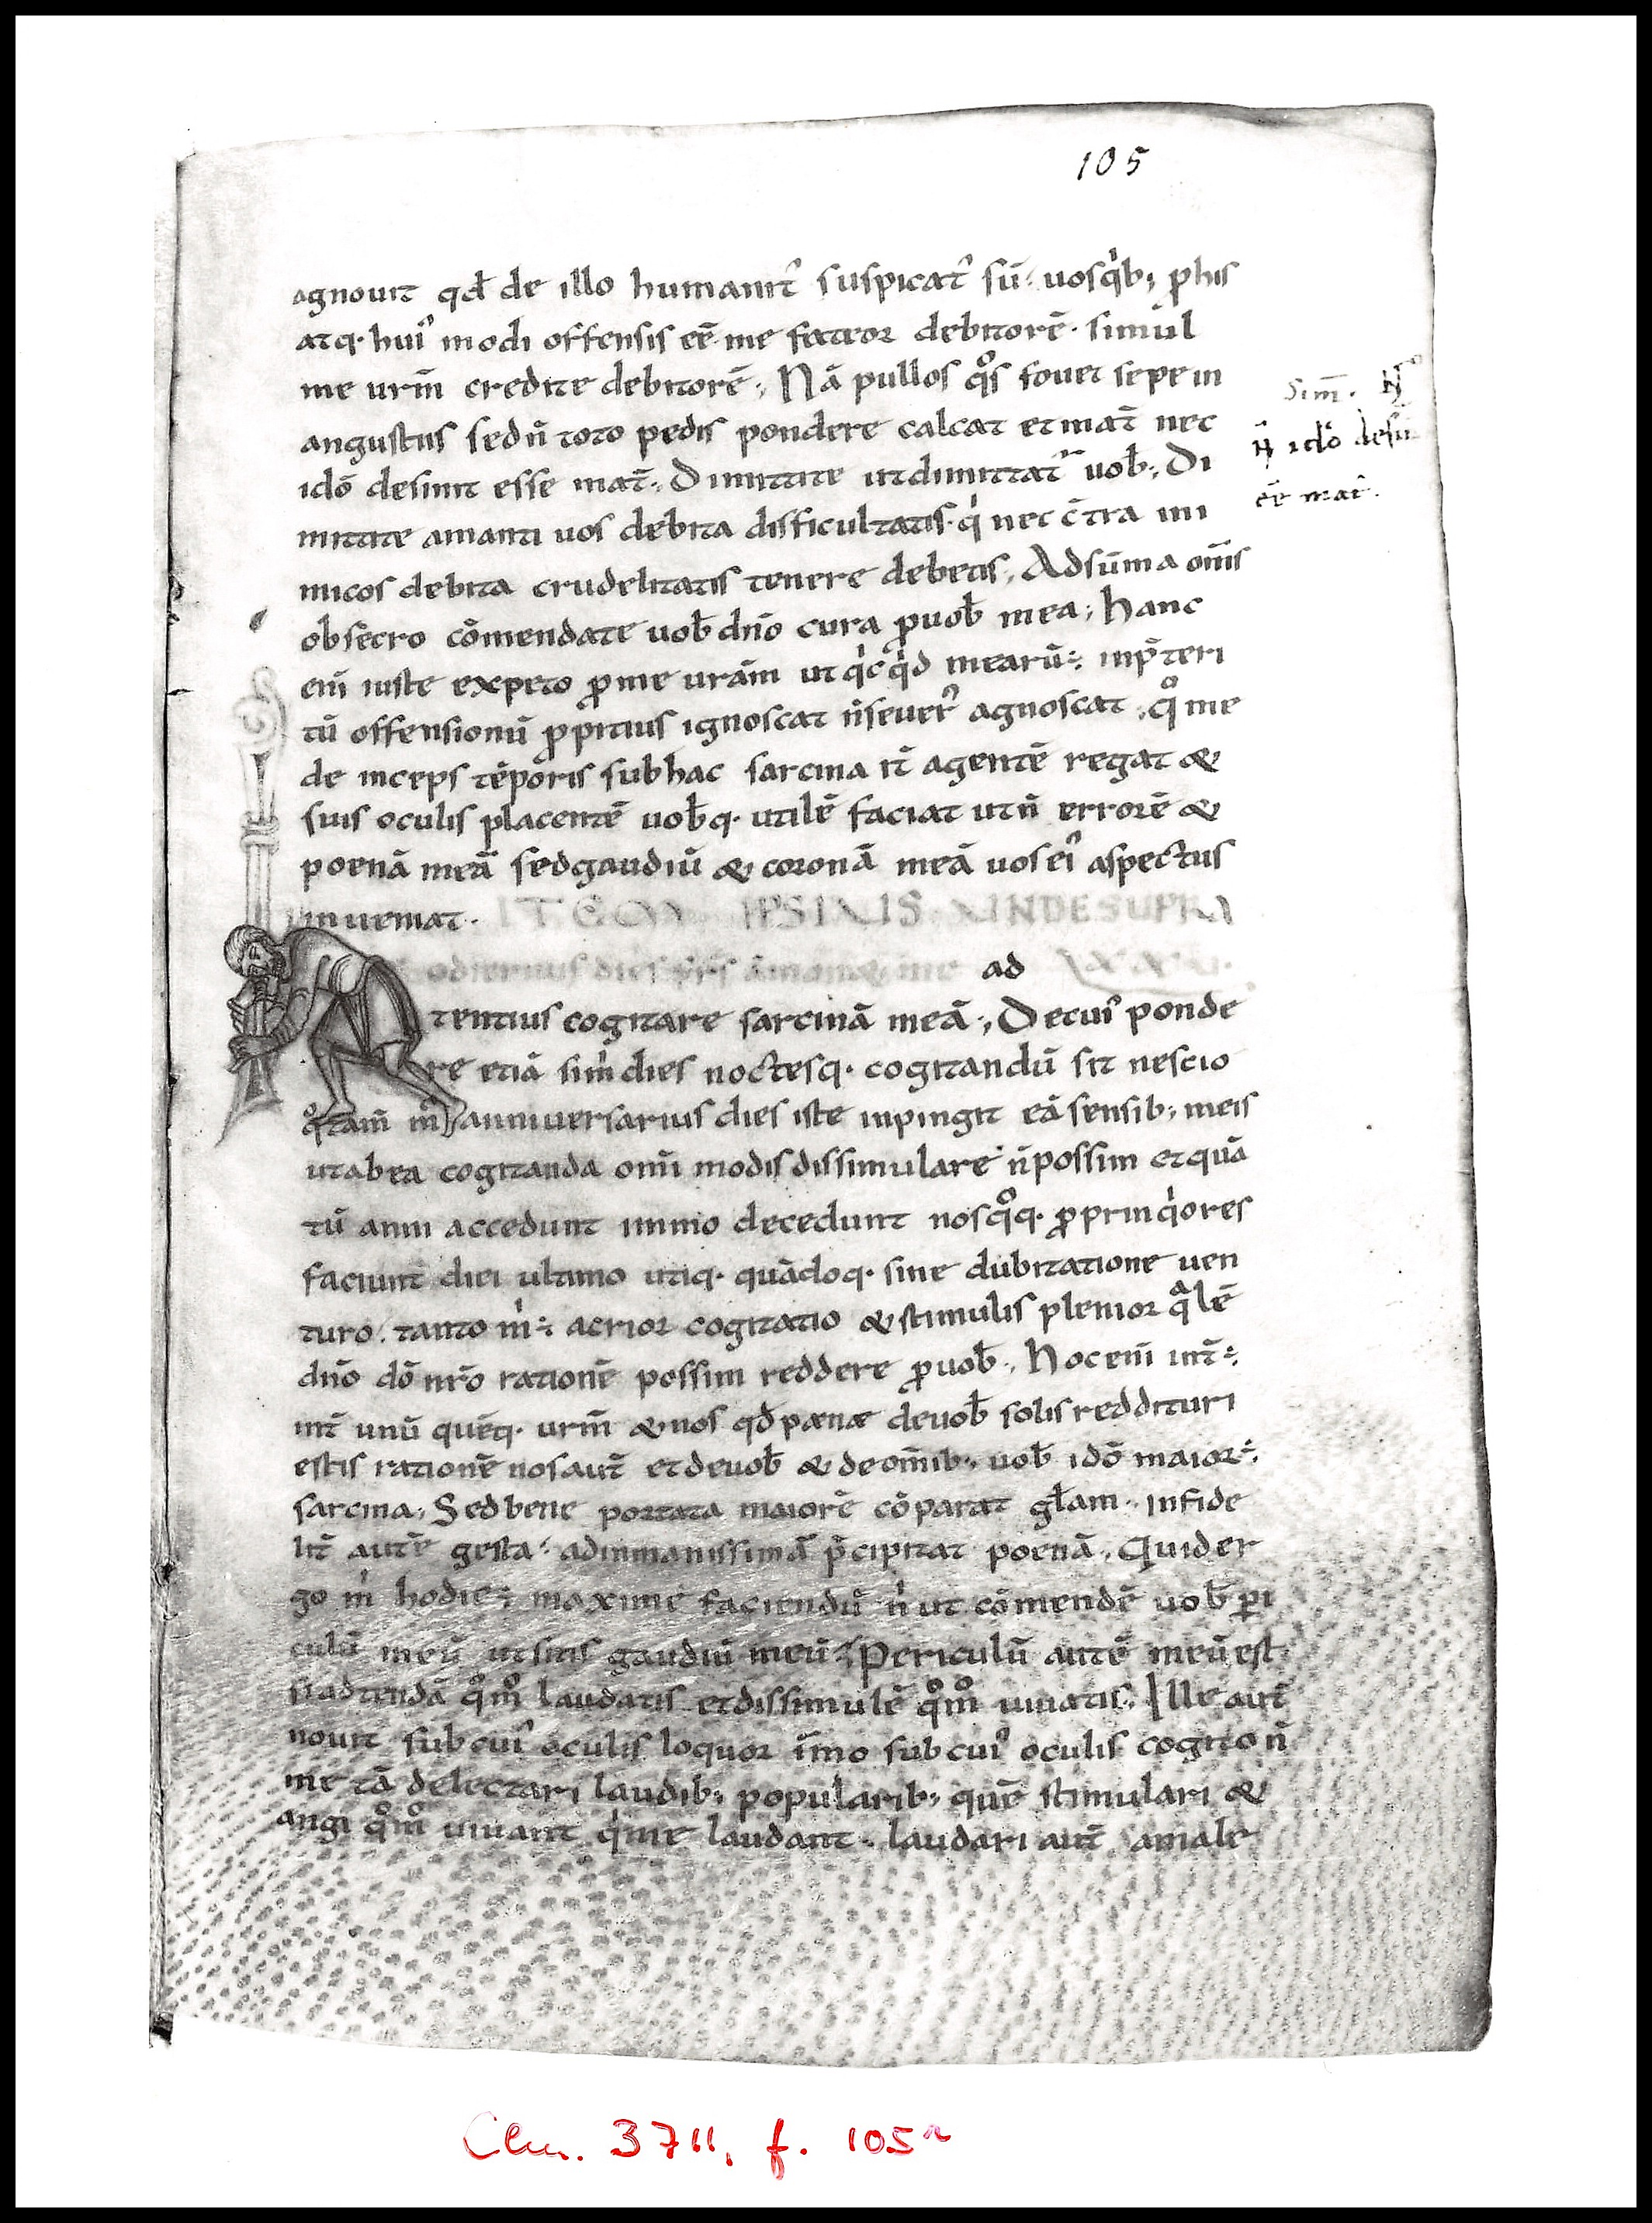 105
agnouit qđ de illo humanit᷒ suspicat᷒ sū. uosq᷒b; p̄ his
atq. hui᷒ modi offensis eē me fateor debitorē. simul
me ur̄m credite debitorē; Nā pullos qͦs fouet sepe in
angustiis sed n̄ toto pedis pondere calcat et mat̄ nec
idō desinit esse mat̄. Dimittite ut dimittat᷒ uob̄. Di
mittite amanti uos debita difficultatis. qⁱ nec c̄tra ini
micos debita crudelitatis tenere debetis. Ad sūma om̄is
obsecro cōmendate uob̄ dn̄o cura ꝓ uob̄ mea; hanc
eni̅ iuste expeto ꝓ me urām ut qⁱcqⁱd mearū ÷ in p̄teri
tū offensionū ꝓpitius ignoscat n̄ seuer᷒ agnoscat. qͦ me
de inceps tēporis sub hac sarcina it̄ agentē regat &
suis oculis placentē uob̄q. utilē faciat ut n̄ errorē &
poenā meā sed gaudiū & coronā meā uos ei᷒ aspectus
inueniat. ITEM IPSIUS UNDE SUPRA
odiernus dies fr̄s āmonet me ad
tentius cogitare sarcinā meā; De cui᷒ ponde
re etiā si mⁱ dies noctesq. cogitandū sit nescio
qͦ tam̄ m̊ anniuersarius dies iste inpingit eā sensib; meis
ut ab ea cogitanda om̄i modis dissimulare n̄ possim et quā
tū anni accedunt immo decedunt nosqͦq. ꝓprinqⁱores
faciunt diei ultimo utiq. quādoq. sine dubitatione uen
turo. tanto mⁱ ÷ acrior cogitatio & stimulis plenior qᵃlē
dn̄o dō nr̄o rationē possim reddere ꝓ uob̄. Hoc eni̅ int̄ ÷
int̄ unū quēq. ur̄m & nos qđ pænæ de uob̄ solis reddituri
estis rationē nos aut̄ et de uob̄ & de om̄ib; uob̄ idō maior ÷
sarcina; Sed bene portata maiorē cōparat gl̄am. infide
lit̄ autē gesta. ad inmanissimā p̄cipitat poenā. Quid er
go mⁱ hodie ÷ maxime faciendū nⁱ ut cōmendē uob̄ ꝑi
culū meū ut sitis gaudiū meū; Periculū autē meū est
si adtendā qͦmͦ laudatis et dissimulē qͦmͦ uiuatis. Ille aut̄
nouit sub cui᷒ oculis loquor īmo sub cui᷒ oculis cogito n̄
me tā delectari laudib; popularib; quē stimulari &
angi qͦmͦ uiuant qⁱ me laudant. laudari aut̄ a male
Sim̄.
n̄ idō desin
eē mat̄.
Clm. 3711, f. 105r